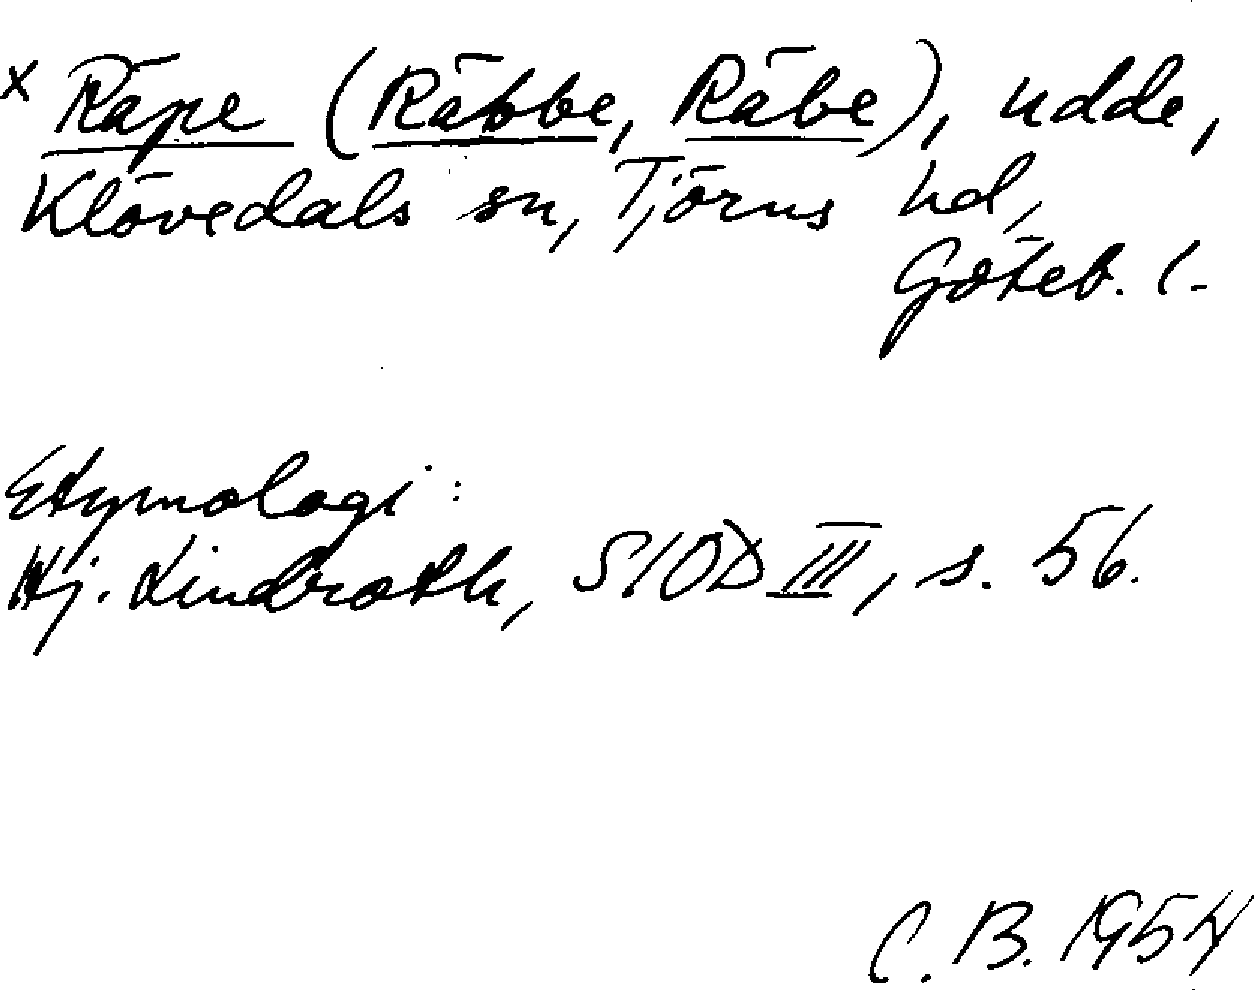 x Räpe (Räbbe, Räbe), udde,
Klövedals sn, Tjörns hd,
Göteb. l.
Etymologi:
Hj. Lindroth, SIOD III, s. 56.
C. B. 1954